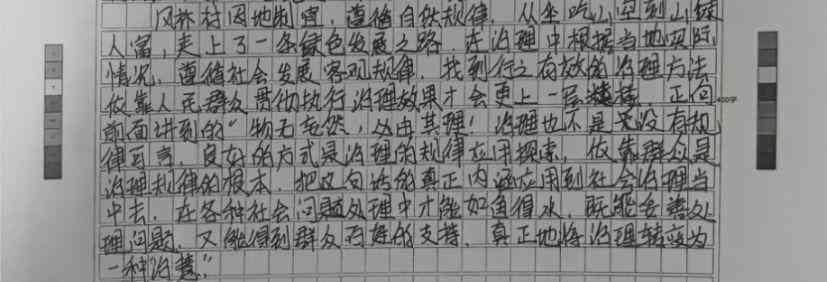 风林村因地制宜，遵循自然规律，从坐吃山空到山绿
人富，走上了一条绿色发展之路。在治理中根据当地实际
情况，遵循社会发展客观规律，找到行之有效的治理方法
依靠人民群众贯彻执行治理效果才会更上一层楼。正向
前面讲到的“物无妄然，必由其理！治理也不是无没有规
律可言，良好的方式是治理的规律应用探索，依靠群众是
治理规律的根本，把这句话的真正内涵应用到社会治理当
中去，在各种社会问题处理中才能如鱼得水，既能妥善处
理问题，又能得到群众百姓的支持，真正地将治理转变为
一种治慧”